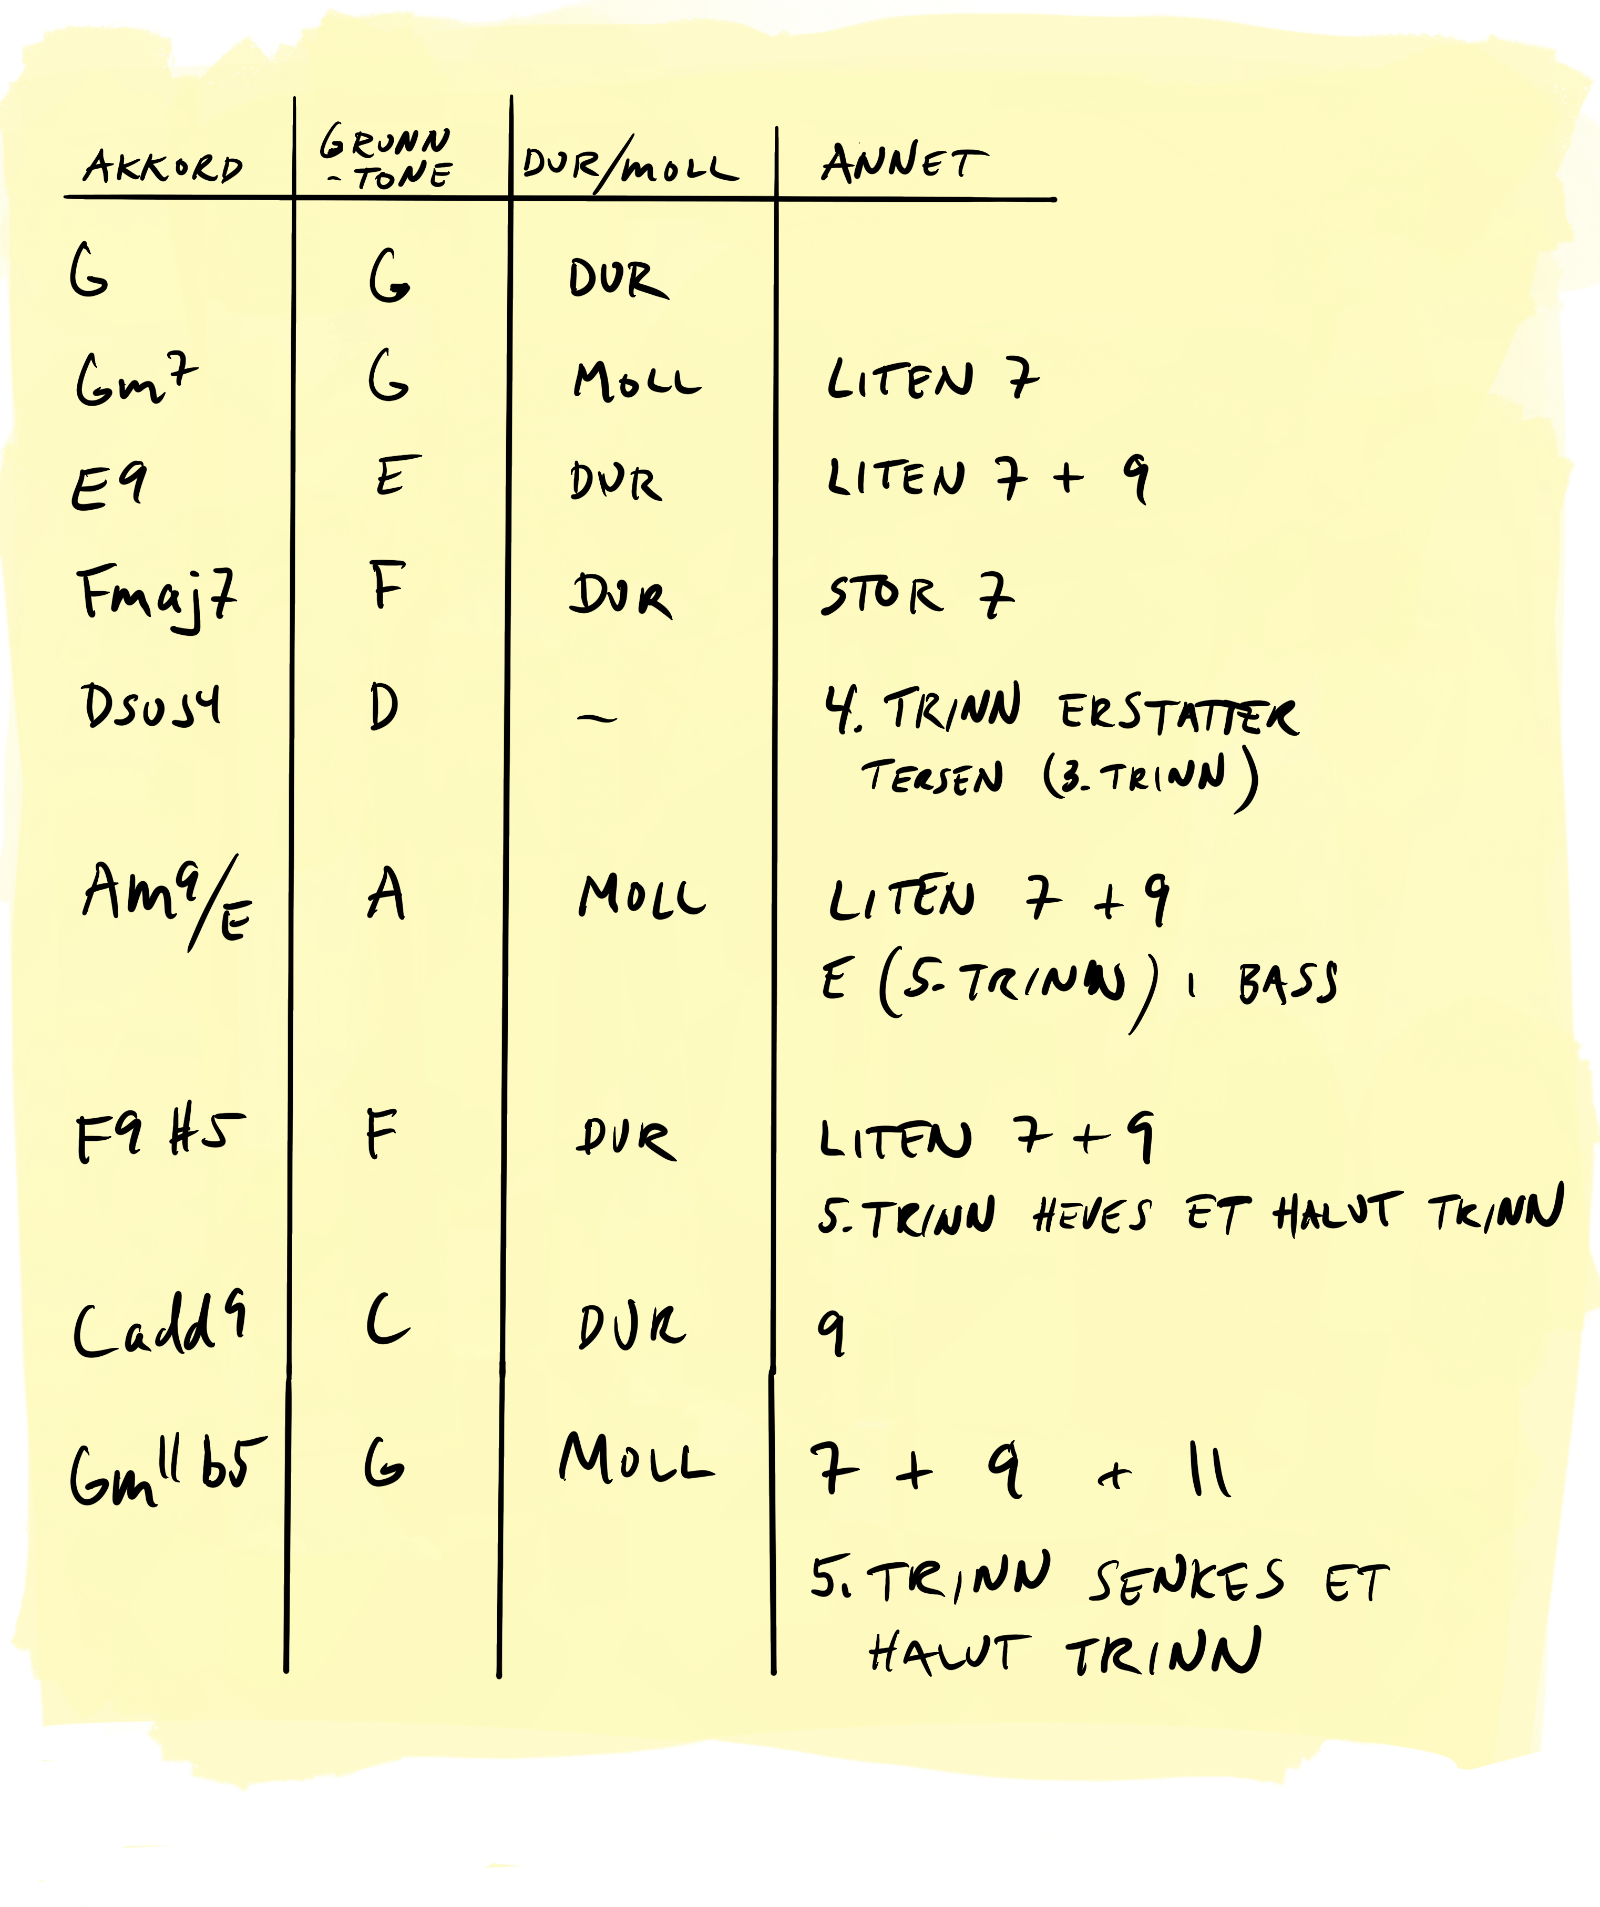 AKKORD GRUNN-TONE DUR/MOLL ANNET
G G DUR
Gm7 G MOLL LITEN 7
E9 E DUR LITEN 7 + 9
Fmaj7 F DUR STOR 7
Dsus4 D – 4. TRINN ERSTATTER
TERSEN (3. TRINN)
Am9/E A MOLL LITEN 7 + 9
E (5. TRINN) I BASS
F9 #5 F DUR LITEN 7 + 9
5. TRINN HEVES ET HALVT TRINN
Cadd9 C DUR 9
Gm11 b5 G MOLL 7 + 9 + 11
5. TRINN SENKES ET
HALVT TRINN